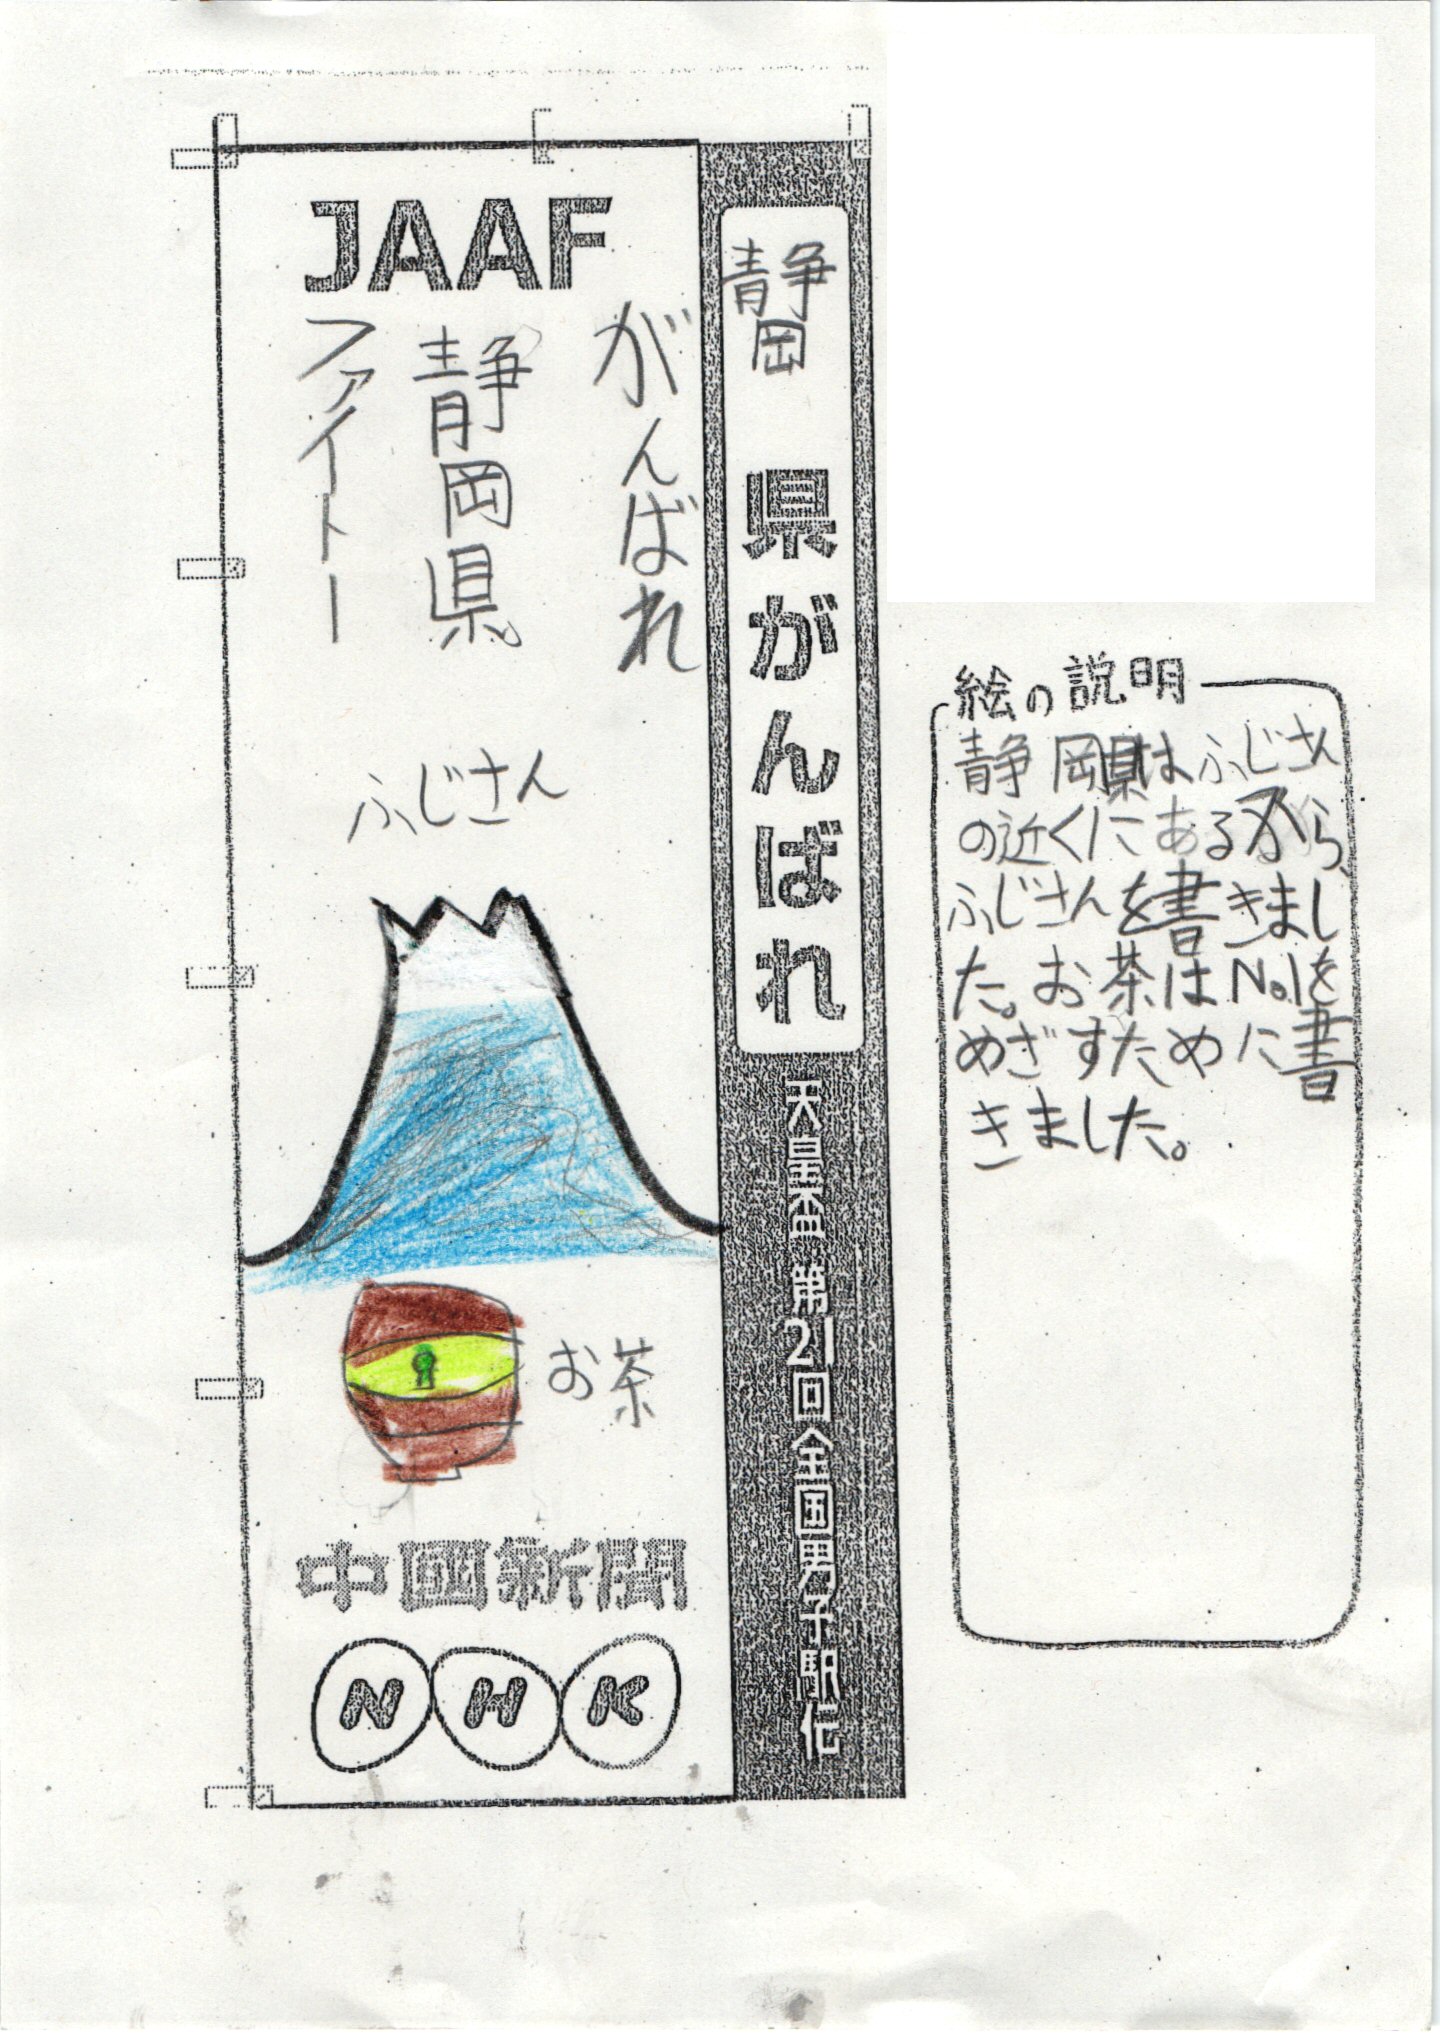 JAAF
がんばれ
静岡県
ファイトー
ふじさん
お茶
中國新聞
NHK
静岡 県がんばれ
天皇盃 第21回全国男子駅伝
絵の説明
静岡県はふじさん
の近くにあるから、
ふじさんを書きまし
た。お茶はNo.1を
めざすために書
きました。